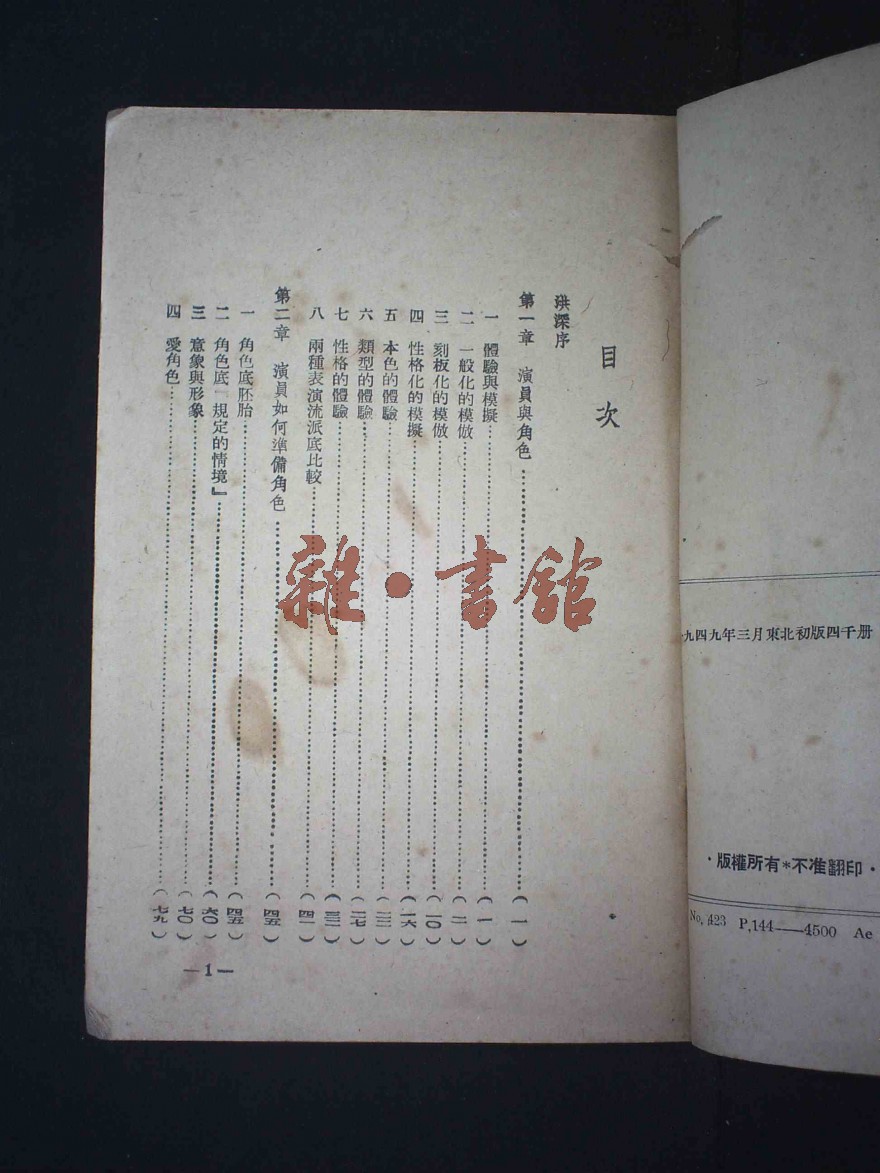 目次
洪深序
第一章 演員與角色……(一)
一 體驗與模擬……(一)
二 一般化的模倣……(二)
三 刻板化的模倣……(一〇)
四 性格化的模擬……(一六)
五 本色的體驗……(二二)
六 類型的體驗……(二七)
七 性格的體驗……(三二)
八 兩種表演流派底比較……(四一)
第二章 演員如何準備角色……(四五)
一 角色底胚胎……(四五)
二 角色底「規定的情境』……(六〇)
三 意象與形象……(七〇)
四 愛角色……(七九)
—1—
雜·書館
九四九年三月東北初版四千册
·版權所有*不准翻印·
No. 423 P.144——4500 Ae